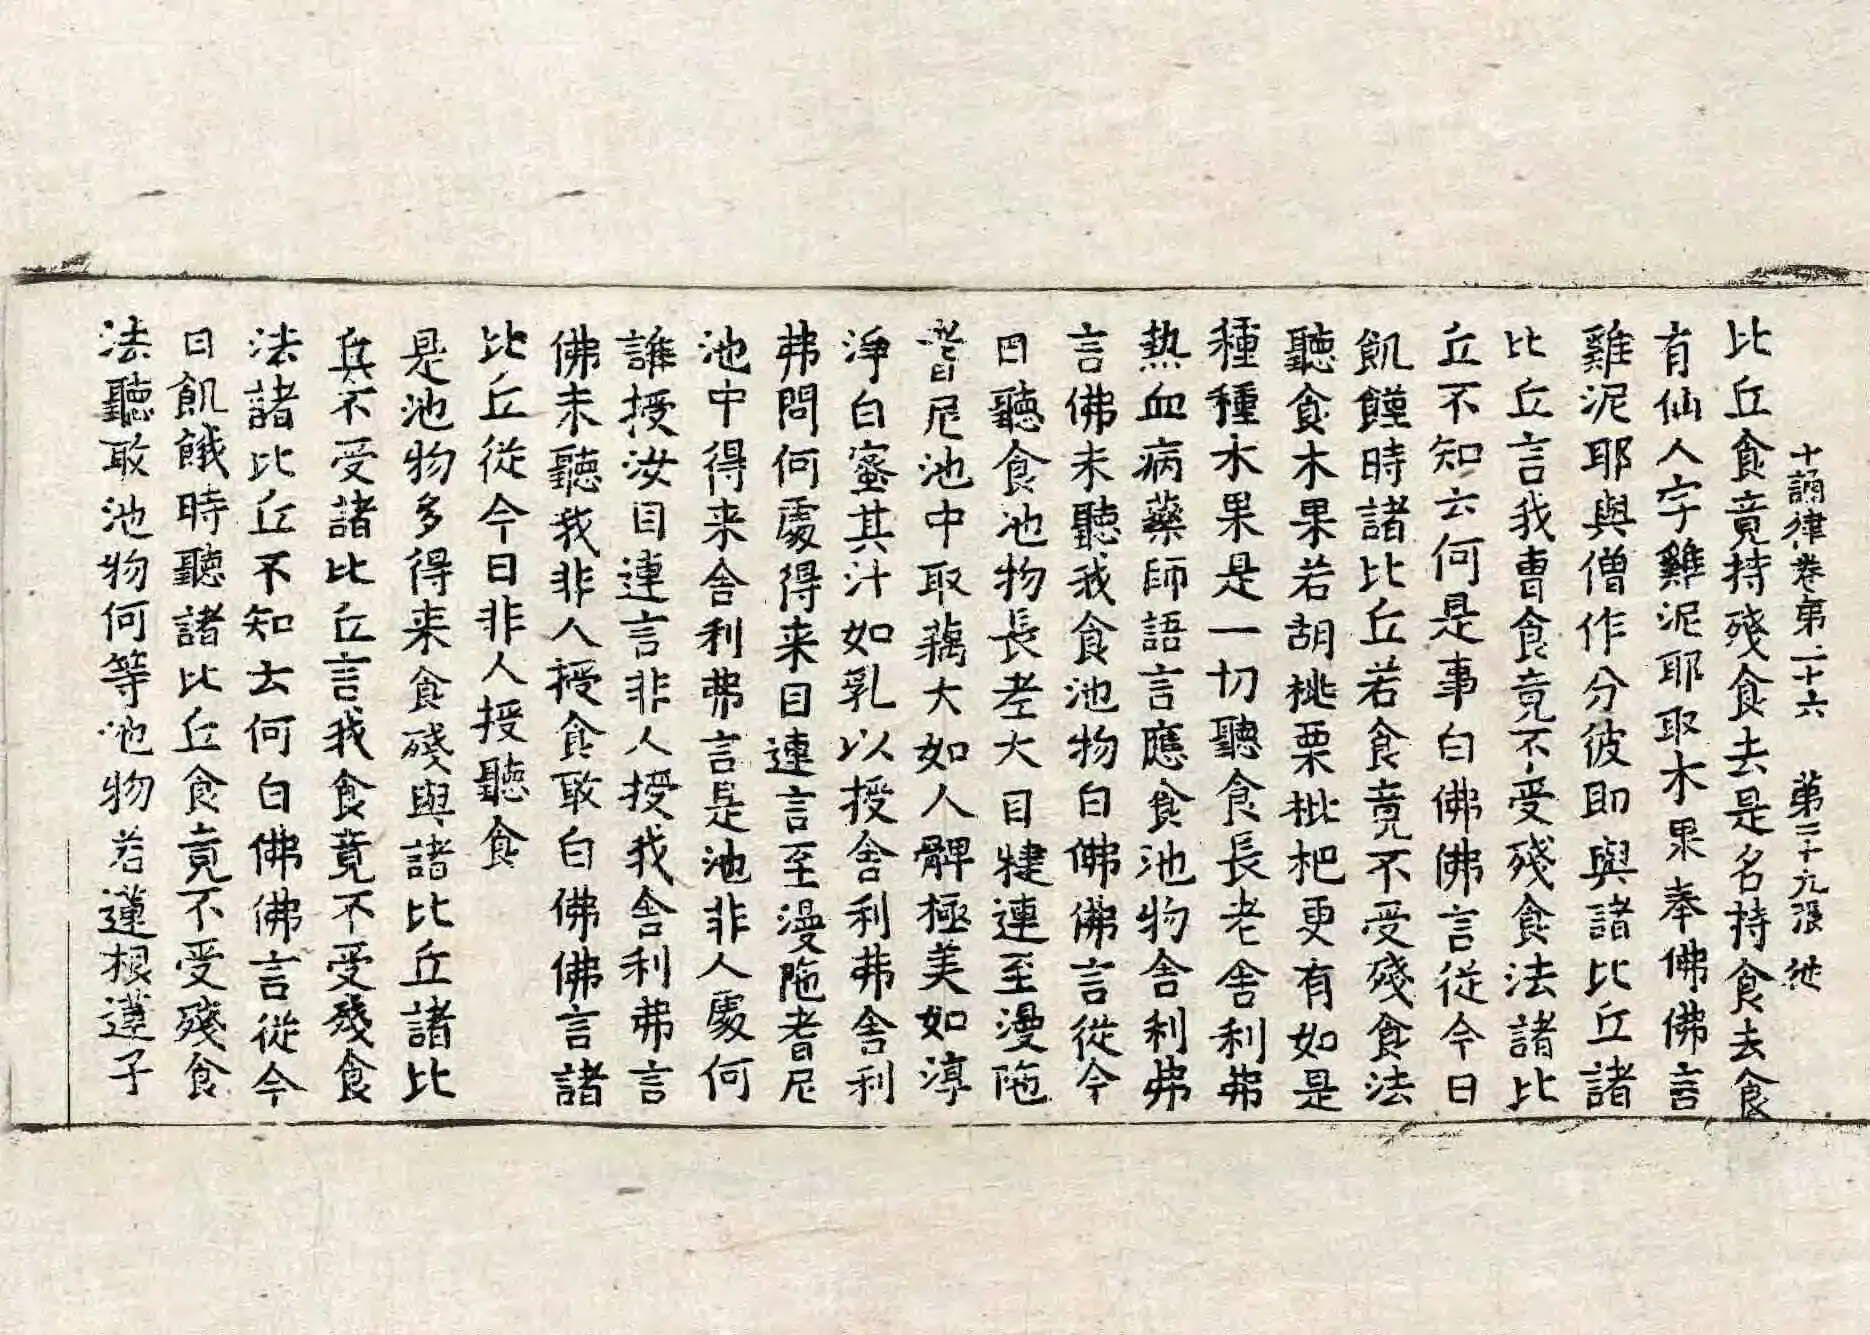 十誦律卷第二十六 第三十九張 袦
比丘食竟持殘食去是名持食去食
有仙人字雞泥耶取木果奉佛佛言
雞泥耶與僧作分彼即與諸比丘諸
比丘言我曹食竟不受殘食法諸比
丘不知云何是事白佛佛言從今日
飢饉時諸比丘若食竟不受殘食法
聽食木果若胡桃栗枇杷更有如是
種種木果是一切聽食長老舍利弗
熱血病藥師語言應食池物舍利弗
言佛未聽我食池物白佛佛言從今
日聽食池物長老大目犍連至漫陁
耆尼池中取藕大如人髀極美如淳
淨白蜜其汁如乳以授舍利弗舍利
弗問何處得来目連言至漫陁耆尼
池中得来舍利弗言是池非人處何
誰授汝目連言非人授我舍利弗言
佛未聽我非人授食敢白佛佛言諸
比丘從今日非人授聽食
是池物多得来食殘與諸比丘諸比
丘不受諸比丘言我食竟不受殘食
法諸比丘不知云何白佛佛言從今
日飢餓時聽諸比丘食竟不受殘食
法聽敢池物何等池物若蓮根蓮子